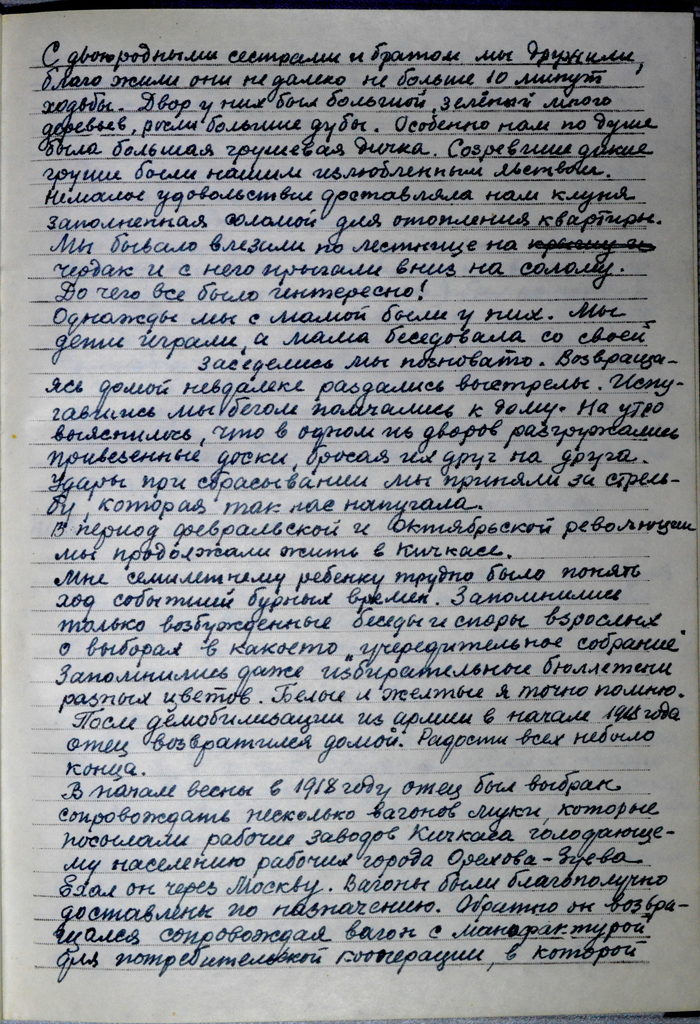 С двоюродными сестрами и братом мы дружили,
благо жили они недалеко не больше 10 минут
ходьбы. Двор у них был большой, зелёный много
деревьев, росли большие дубы. Особенно нам по душе
была большая грушевая дичка. Созревшие дикие
груши были нашим излюбленным явством.
Немалое удовольствие доставляла нам клуня
заполненная соломой для отопления квартиры.
Мы бывало влезали по лестнице на
чердак и с него прыгали вниз на солому.
До чего все было интересно!
Однажды мы с мамой были у них. Мы
дети играли, а мама беседовала со своей
Заседелись мы позновато. Возвраща-
ясь домой невдалеке раздались выстрелы. Испу-
гавшись мы бегом помчались к дому. На утро
выяснилось, что в одном из дворов разгружались
привезенные доски, бросая их друг на друга.
Удары при сбрасывании мы приняли за стрель-
бу, которая так нас напугала.
В период февральской и Октябрьской революции
мы продолжали жить в Кичкасе.
Мне семилетнему ребенку трудно было понять
ход событий бурных времен. Запомнились
только возбужденные беседы и споры взрослых
о выборах в какоето "учередительное собрание"
Запомнились даже избирательные бюллетени
разных цветов. Белые и желтые я точно помню.
После демобилизации из армии в начале 1918 года
отец возвратился домой. Радости всех небыло
конца.
В начале весны в 1918 году отец был выбран
сопровождать несколько вагонов муки, которые
посылали рабочие заводов Кичкаса голодающе-
му населению рабочих города Орехова-Зуева
Ехал он через Москву. Вагоны были благополучно
доставлены по назначению. Обратно он возвра-
щался сопровождая вагон с манафактурой
для потребительской кооперации, в которой